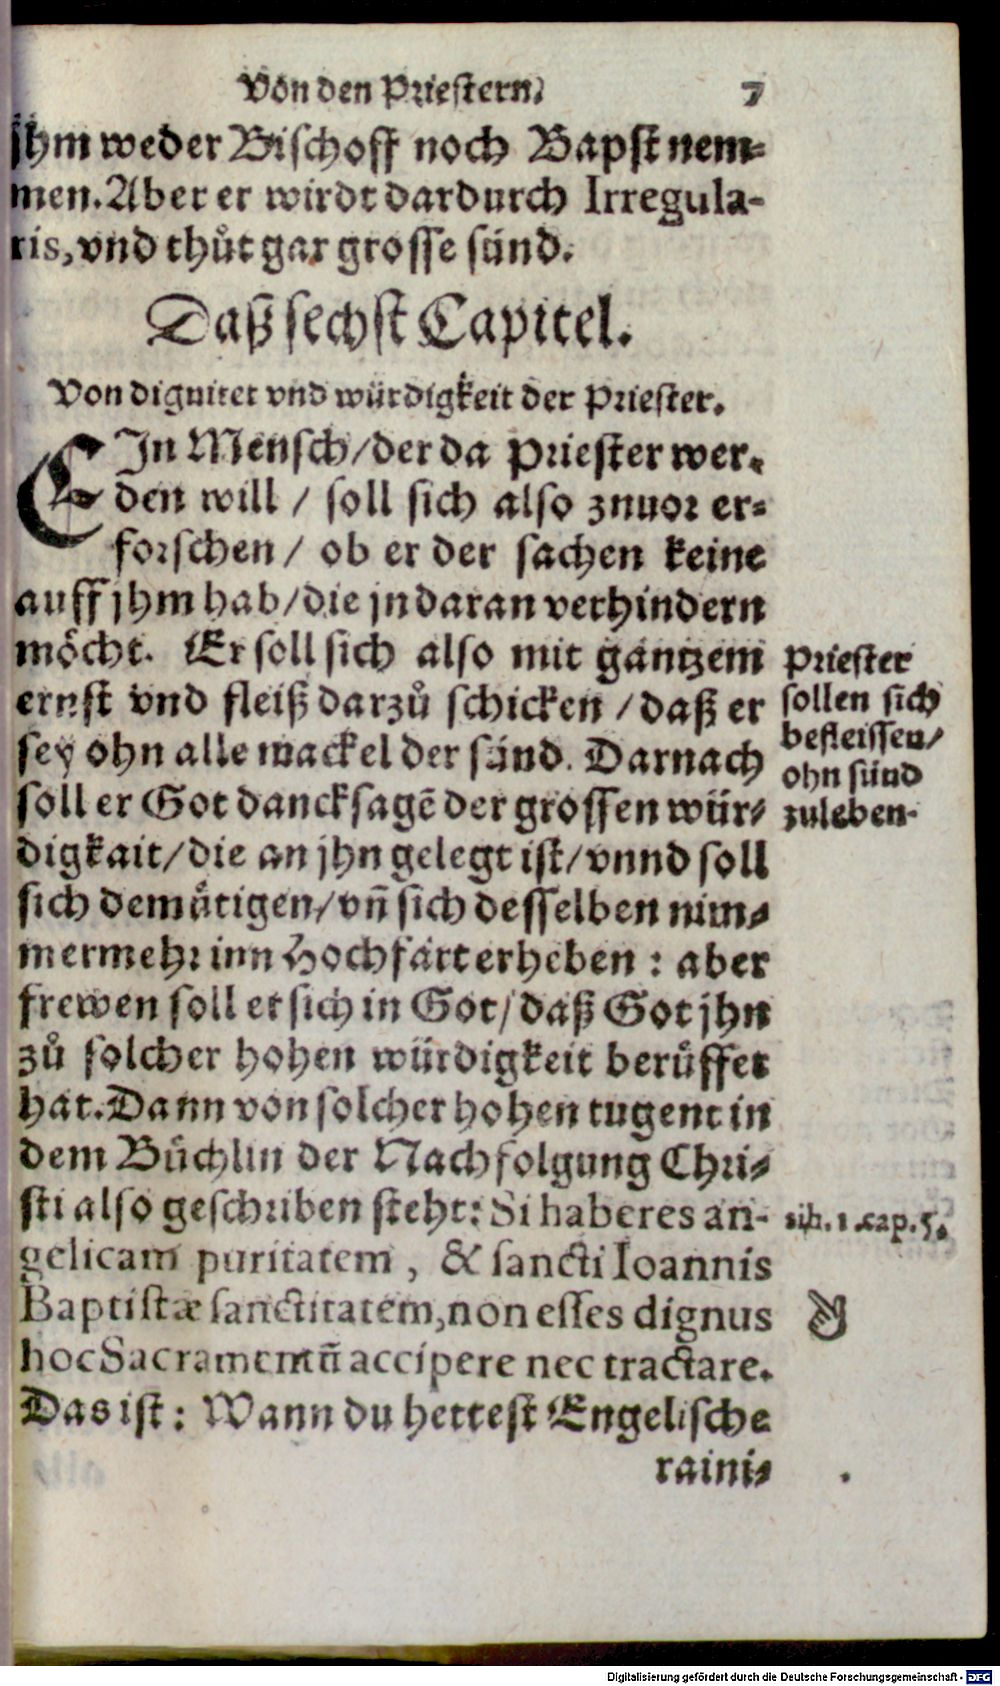 Von den Priestern. 7
jhm weder Bischoff noch Bapst nem-
men. Aber er wirdt dardurch Irregula-
ris, vnd thůt gar grosse sünd.
Daß sechst Capitel.
Von dignitet vnd würdigkeit der Priester.
EIn Mensch / der da Priester wer-
den will / soll sich also znuor er-
forschen / ob er der sachen keine
auff jhm hab / die jn daran verhindern
möcht. Er soll sich also mit gantzem
ernst vnd fleiß darzů schicken / daß er
sey ohn alle mackel der sünd. Darnach
soll er Got dancksagē der grossen wür-
digkait / die an jhn gelegt ist / vnnd soll
sich demütigen / vñ sich desselben nim-
mermehr inn Hochfart erheben : aber
frewen soll er sich in Got / daß Got jhn
zů solcher hohen würdigkeit berüffet
hat. Dann von solcher hohen tugent in
dem Büchlin der Nachfolgung Chri-
sti also geschriben steht: Si haberes an-
gelicam puritatem, & sancti Ioannis
Baptistæ sanctitatem, non esses dignus
hoc Sacramentũ accipere nec tractare.
Das ist : Wann du hettest Engelische
raini-
Priester
sollen sich
befleissen /
ohn sünd
zuleben.
lib. 1. cap. 5.
Digitalisierung gefördert durch die Deutsche Forschungsgemeinschaft - DFG